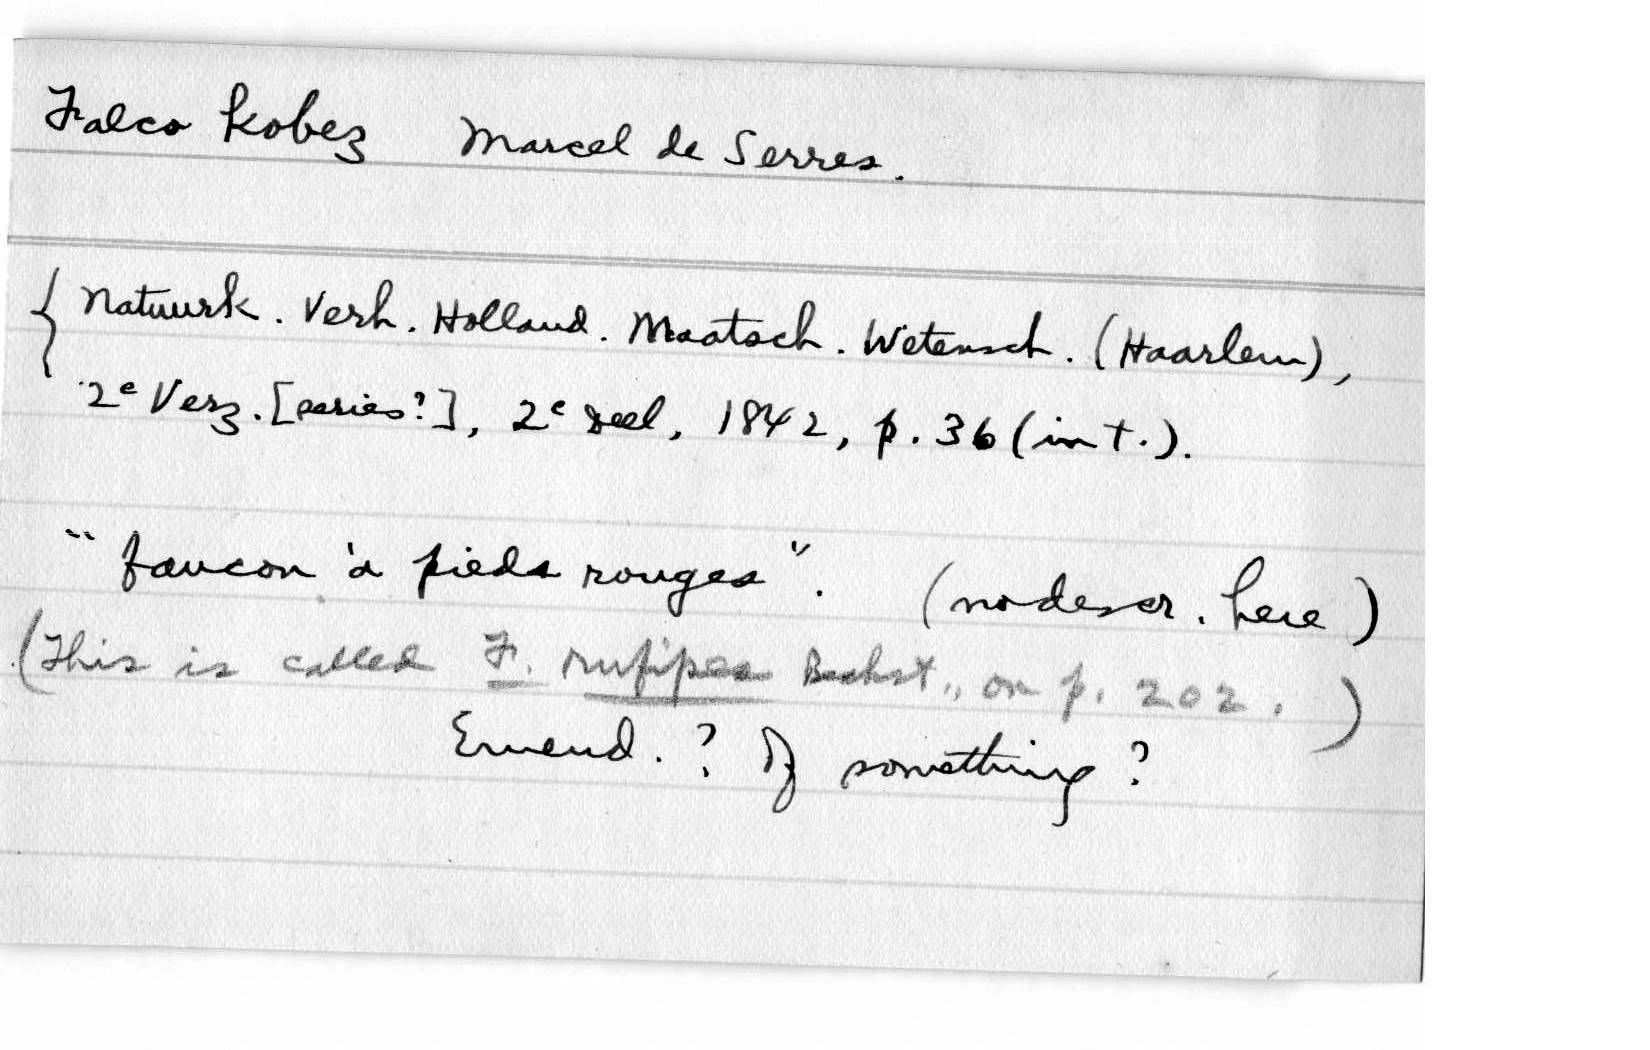 Falco kobez Marcel de Serres.
Natuurk. Verh. Holland. Maatsch. Wetensch. (Haarlem),
2e Verz. [series?], 2e deel, 1842, p. 36 (in t.).
"faucon à pieds rouges". (no descr. here)
(This is called F. rufipes Bechst., on p. 202.)
Emend.? Of something?